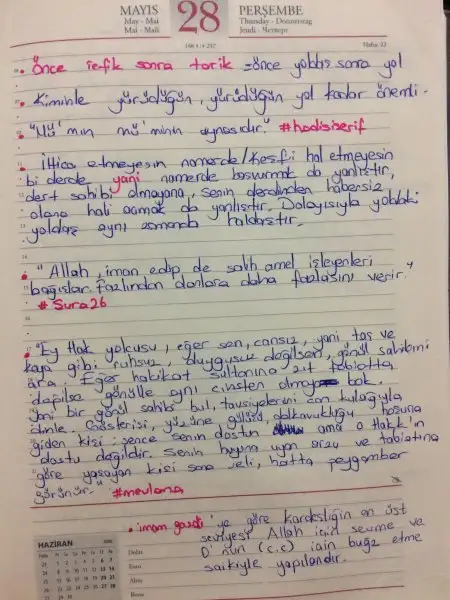 MAYIS
May - Mai
Mai - Май
28
PERŞEMBE
Thursday - Donnerstag
Jeudi - Четверг
Hafta: 22
Önce refik sonra tarik = önce yoldaş sonra yol
Kiminle yürüdüğün, yürüdüğün yol kadar önemli.
"Mü'min mü'minin aynasıdır." #hadisişerif
İltica etmeyesin namerde / Keşfi hal etmeyesin
bi derde yani namerde başvurmak da yanlıştır,
dert sahibi olmayana, senin derdinden habersiz
olana hali açmak da yanlıştır. Dolayısıyla yoldaki
yoldaş aynı zamanda haldaştır.
"Allah, iman edip de salih amel işleyenleri
bağışlar, fazlından onlara daha fazlasını verir."
# Sura 26
"Ey Hak yolcusu, eğer sen, cansız, yani taş ve
kaya gibi ruhsuz, duygusuz değilsen, gönül sahibini
ara. Eğer hakikat sultanına zıt tabiatta
değilse gönülle aynı cinsten olmaya bak.
Yani bir gönül sahibi bul, tavsiyelerini can kulağıyla
dinle. Gösterişi, yüzüne gülüşü, dalkavukluğu hoşuna
giden kişi; bence senin dostun ama o Hakk'ın
dostu değildir. Senin huyuna uyan arzu ve tabiatına
göre yaşayan kişi sana veli, hatta peygamber
görünür." #mevlana
imam gazali'ye göre kardeşliğin en üst
seviyesi Allah için sevme ve
O'nun (c.c) için buğz etme
saikiyle yapılandır.
HAZİRAN